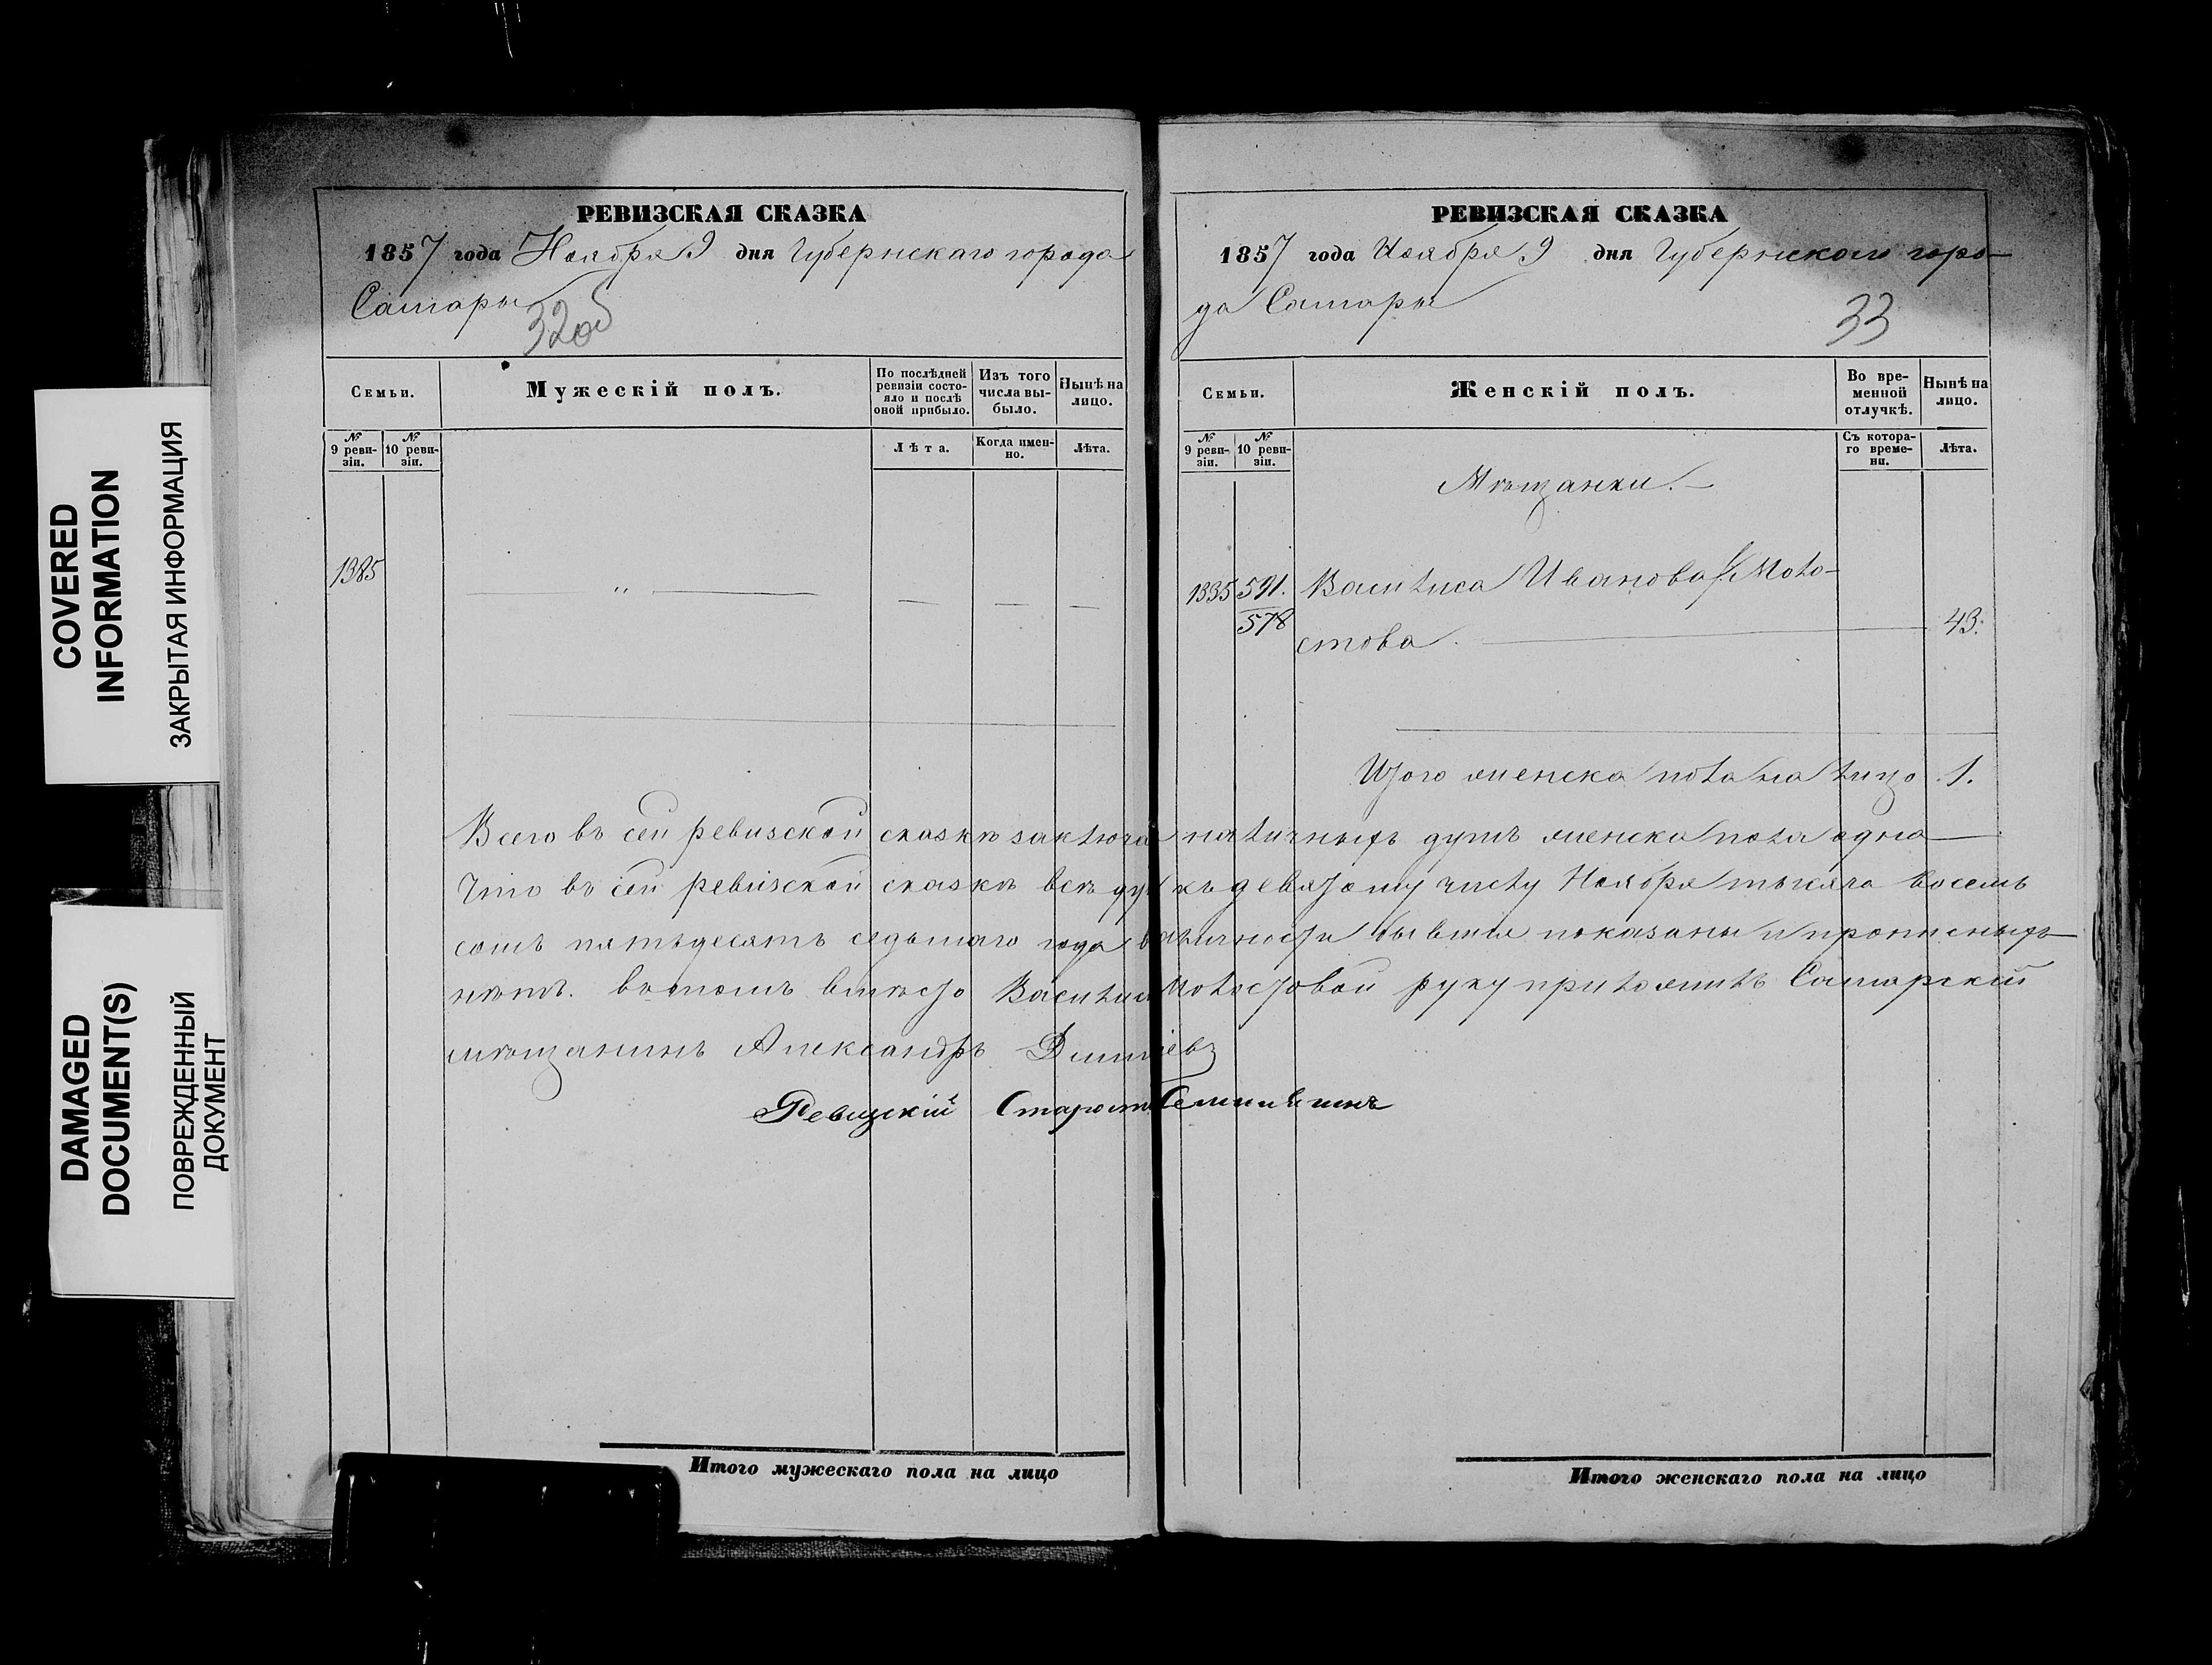 COVERED
INFORMATION
ЗАКРЫТАЯ ИНФОРМАЦИЯ
DAMAGED
DOCUMENT(S)
ПОВРЕЖДЕННЫЙ
ДОКУМЕНТ
РЕВИЗСКАЯ СКАЗКА
1857 года Ноября 9 дня Губернскаго города
Самары
32об
Семьи.
Мужескій полъ.
По послѣдней ревизіи состояло и послѣ оной прибыло.
Изъ того числа выбыло.
Нынѣ на лицо.
№ 9 ревизіи.
№ 10 ревизіи.
Лѣта.
Когда именно.
Лѣта.
1385
РЕВИЗСКАЯ СКАЗКА
1857 года Ноября 9 дня Губернскаго горо-
да Самары
33
Семьи.
Женскій полъ.
Во временной отлучкѣ.
Нынѣ на лицо.
№ 9 ревизіи.
№ 10 ревизіи.
Съ котораго времени.
Лѣта.
Мѣщанки.
1335 591. Василиса Иванова Моло-
578 стова 43.
Итого женска пола на лицо 1.
Всего въ сей ревизской сказкѣ заключа наличныхъ душъ женска пола одна
Что въ сей ревизской сказкѣ всѣ ду къ девятому числу Ноября тысяча восемь
сотъ пятьдесятъ седьмаго года въ личности бывшия показаны и прописныхъ
нѣтъ. въ томъ вмѣсто Василисы Молостовой руку приложилъ Самарскій
мѣщанинъ Александръ
Ревизскій Староста
Итого мужескаго пола на лицо
Итого женскаго пола на лицо